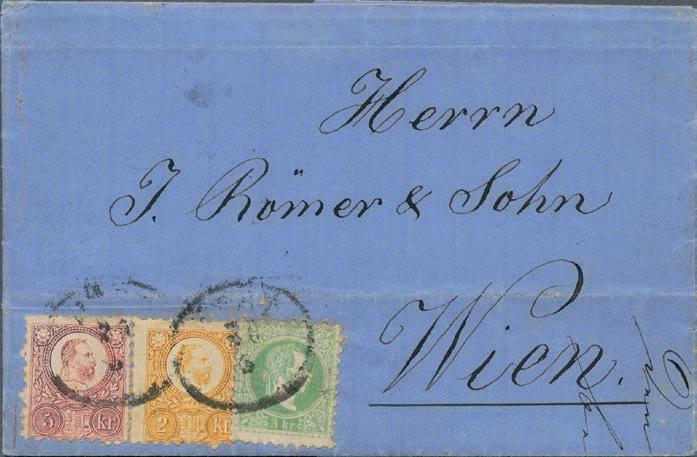 Herrn
J. Römer & Sohn
Wien.
5 kr
2 kr
3 kr.